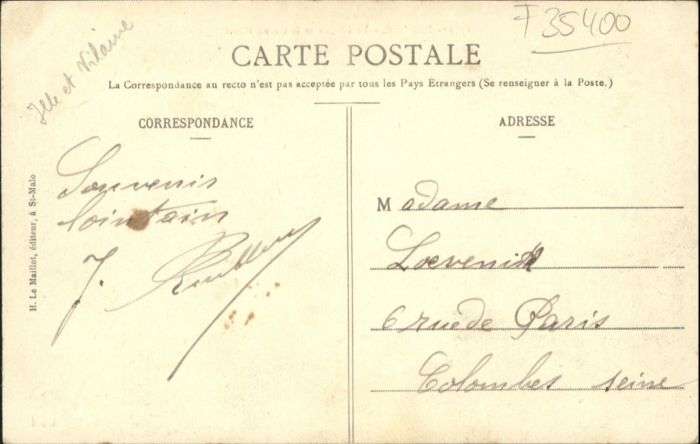 Ille et Vilaine
F 35400
CARTE POSTALE
La Correspondance au recto n'est pas acceptée par tous les Pays Etrangers (Se renseigner à la Poste.)
CORRESPONDANCE
Souvenir
lointain
J.
H. Le Maillot, éditeur, à St-Malo
ADRESSE
Madame
6 rue de Paris
Colombes seine